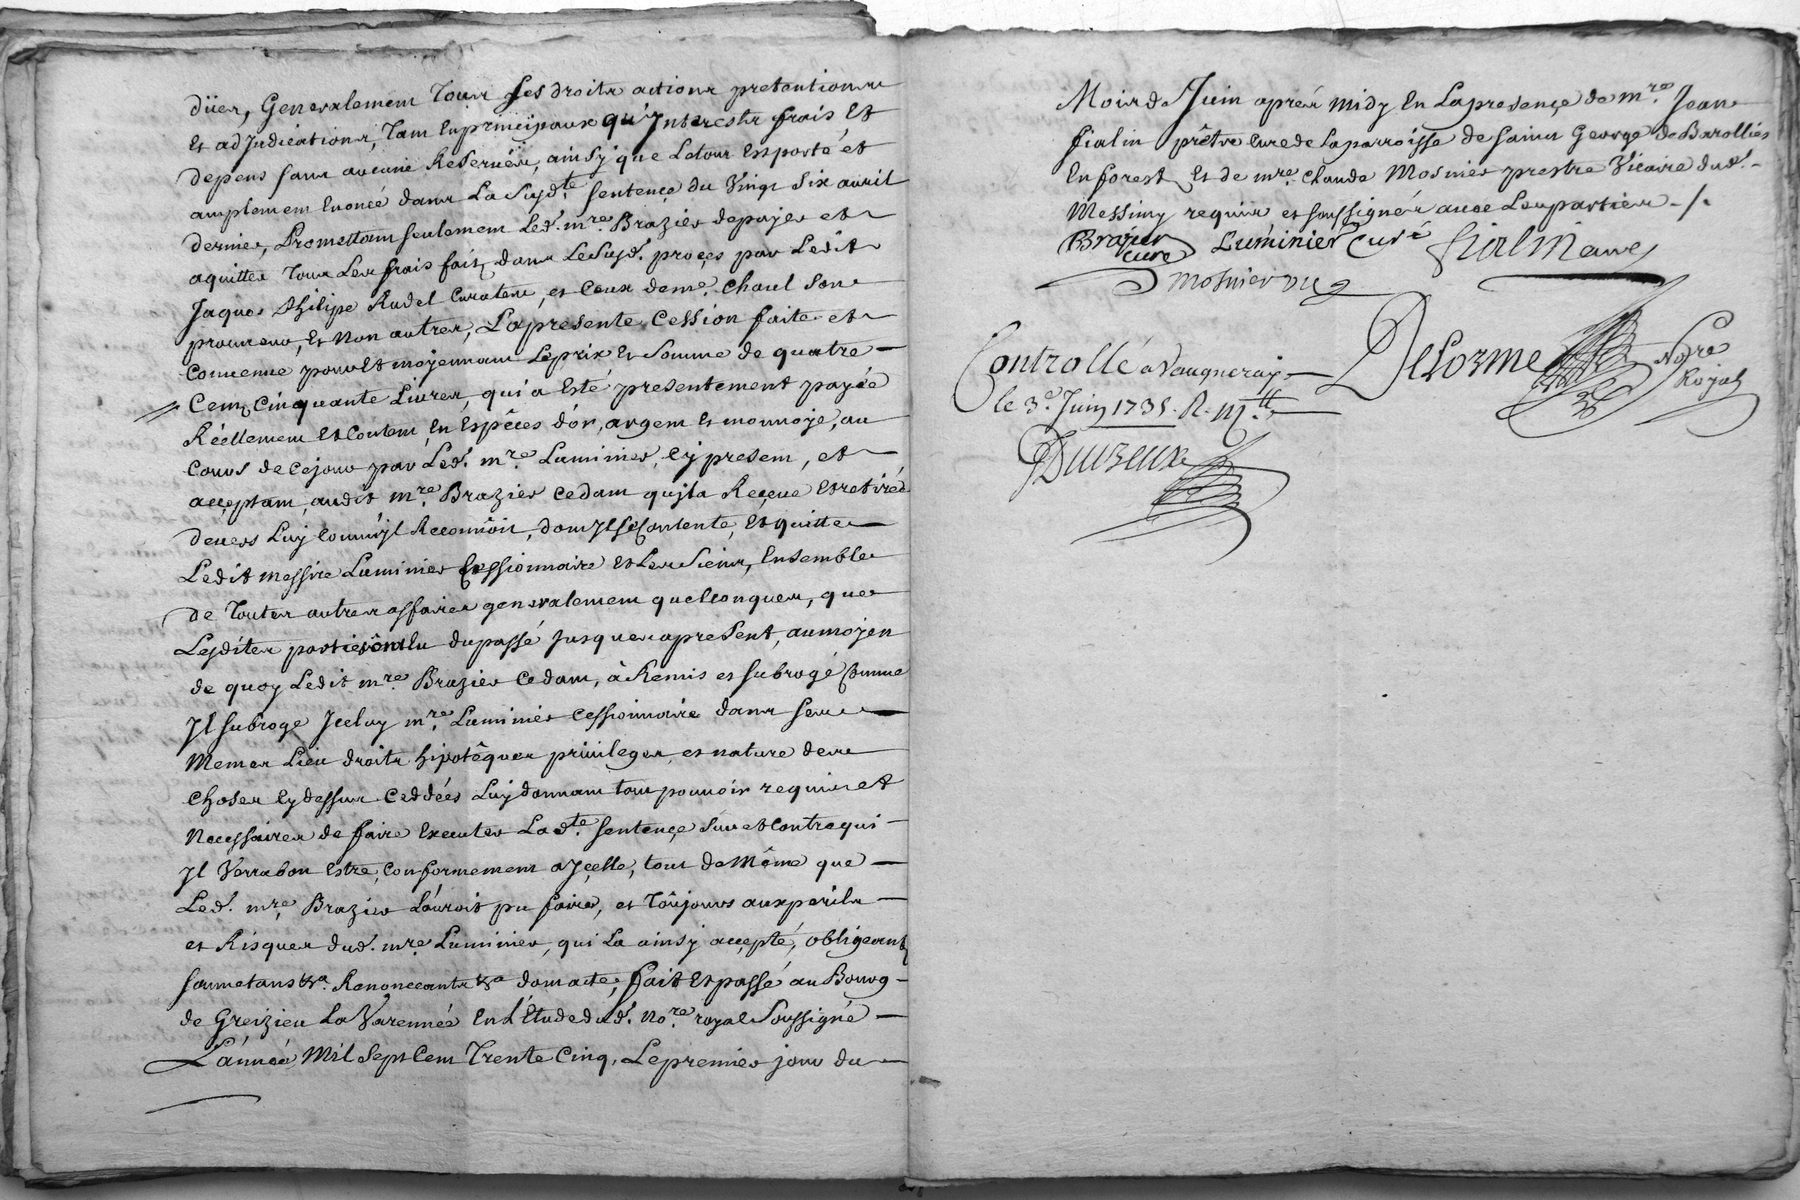 düer, Generalement Tous ses droits actions pretentions
Et adJudications, Tant En principaux qu'Interests frais Et
depens sans aucune Reservées, ainsy que Letout Est porté et
amplement Enoncé dans La Susd.te sentençe du Vingt Six avril
dernier, Promettant seulement Led. m.re Brazier depayer et
aquitter Tous Les frais faits dans LeSusd. proçes par Ledit
Jaques Philipe Rudel Curateur, et Ceux de me. Chaul Son
procureur, Et Non autres, Lapresente Cession faite et
Convenue pour Et moyennant Leprix Et Somme de quatre
Cent Cinquante Livres, qui a Esté presentement payée
Réellement Et Content En Espêces d'or, argent Et monnoye, au
Cours de Cejour par Led. m.re Luminier, Cy present, et
acçeptant, audit m.re Brazier Cedant qu'jl a Reçeue Et retirée
devers Luy Comm'jl Reconnôit, dont Jl se Contente, Et quitte
Ledit messire Luminier Cessionnaire Et Les Siens, Ensemble
de Toutes autres affaires generalement quelconques, que
Lesdites parties ônt Eu du passé Jusques apreSent, au moyen
de quoy Ledit m.re Brazier Cedant, à Remis et subrogé Comme
Jl subroge Jceluy m.re Luminier Cessionnaire dans ses
Memes Lieu droits hipotêques privileges, et nature des
Choses Cy dessus Ceddées Luy donnant tout pouvoir requis et
Necessaires de faire Executer Lad.te sentençe Sur et Contre qui
Jl Verra bon Estre, Conformement a Jçelle, tout de Même que
Led. m.re Brazier L'auroit pu faire, et Toûjours aux perils
et Risques dud. m.re Luminier, qui La ainsy acçepté, obligeant
soumetans &a. Renonceants &a dont acte, fait Et passé au Bourg
de Greizieu La Varennée En L'Etude dud. No.re royal Soussigné
L'année Mil Sept Cent Trente Cinq, Le premier jour du
Mois de Juin aprés midy En La presençe de m.re Jean
fialin prêtre Cure de La parroisse de Saint George de Barollies
En forest Et de m.re Claude Mosnier prestre Vicaire dud.
Messimy requis et soussignés avec Les parties ./.
Brazier Luminier Curé fialin
Cure
Mosnier
Controllé a Vaugneray Delorme No.re
Royal
le 3.e Juin 1735. R.